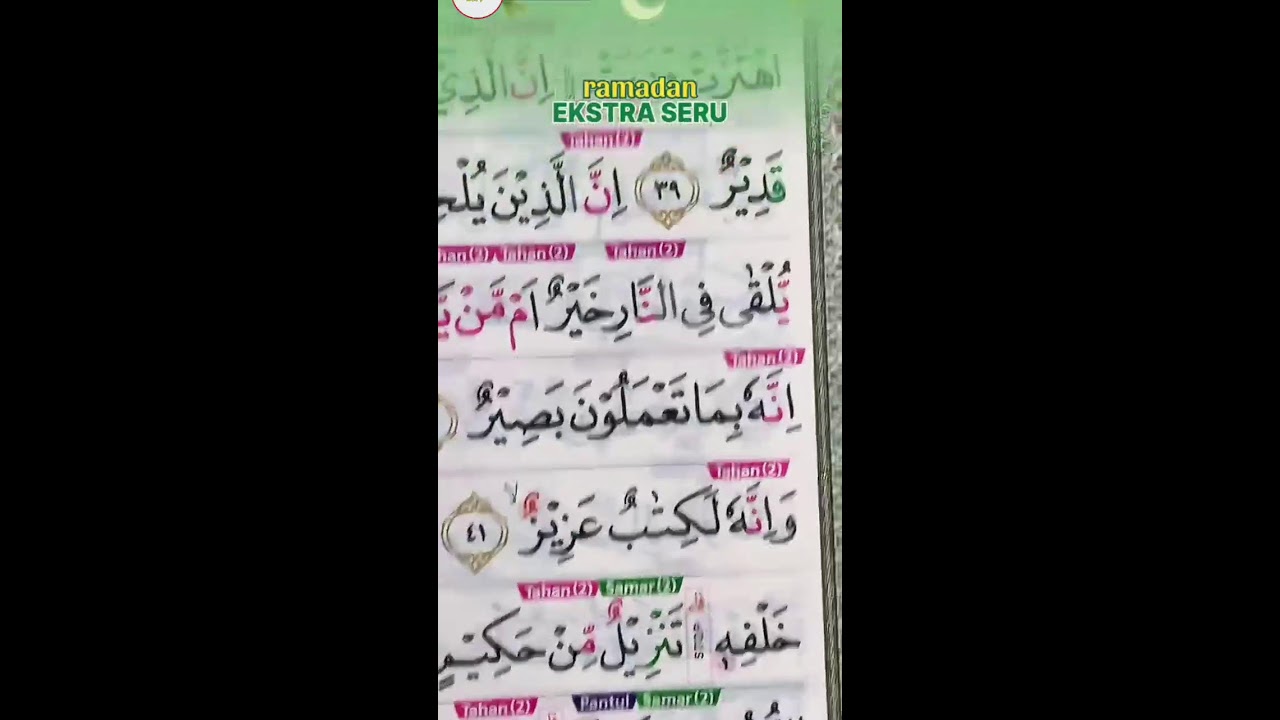 اهْتَزَّتْ اِنَّ الَّذِيْ
ramadan
EKSTRA SERU
Tahan(2)
قَدِيْرٌ ٣٩ اِنَّ الَّذِيْنَ يُلْحِ
Tahan(2) Tahan(2) Tahan(2)
يُّلْقٰى فِى النَّارِ خَيْرٌ اَمْ مَّنْ يَّ
Tahan(2)
اِنَّهٗ بِمَا تَعْمَلُوْنَ بَصِيْرٌ
Tahan(2)
وَاِنَّهٗ لَكِتٰبٌ عَزِيْزٌ ۙ ٤١
Tahan(2) Samar(2)
خَلْفِهٖ تَنْزِيْلٌ مِّنْ حَكِيْمٍ
Tahan(2) Pantul Samar(2)